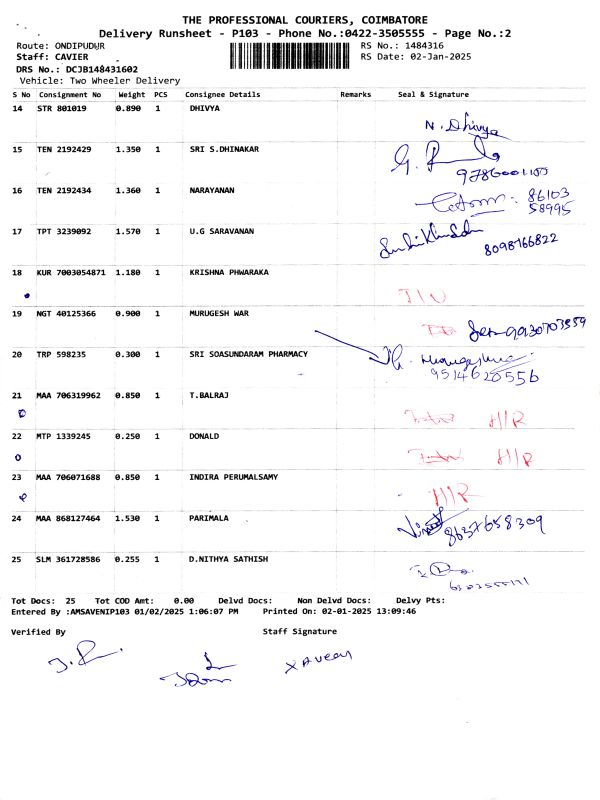 THE PROFESSIONAL COURIERS, COIMBATORE
Delivery Runsheet - P103 - Phone No.:0422-3505555 - Page No.:2
Route: ONDIPUDUR RS No.: 1484316
Staff: CAVIER RS Date: 02-Jan-2025
DRS No.: DCJB148431602
Vehicle: Two Wheeler Delivery
S No Consignment No Weight PCS Consignee Details Remarks Seal & Signature
14 STR 801019 0.890 1 DHIVYA
N. Dhivya
15 TEN 2192429 1.350 1 SRI S.DHINAKAR
16 TEN 2192434 1.360 1 NARAYANAN
86103
58995
17 TPT 3239092 1.570 1 U.G SARAVANAN
8098766822
18 KUR 7003054871 1.180 1 KRISHNA PHWARAKA
19 NGT 40125366 0.900 1 MURUGESH WAR
9930703559
20 TRP 598235 0.300 1 SRI SOASUNDARAM PHARMACY
9514620556
21 MAA 706319962 0.850 1 T.BALRAJ
22 MTP 1339245 0.250 1 DONALD
23 MAA 706071688 0.850 1 INDIRA PERUMALSAMY
24 MAA 868127464 1.530 1 PARIMALA
8637658309
25 SLM 361728586 0.255 1 D.NITHYA SATHISH
Tot Docs: 25 Tot COD Amt: 0.00 Delvd Docs: Non Delvd Docs: Delvy Pts:
Entered By :AMSAVENIP103 01/02/2025 1:06:07 PM Printed On: 02-01-2025 13:09:46
Verified By Staff Signature